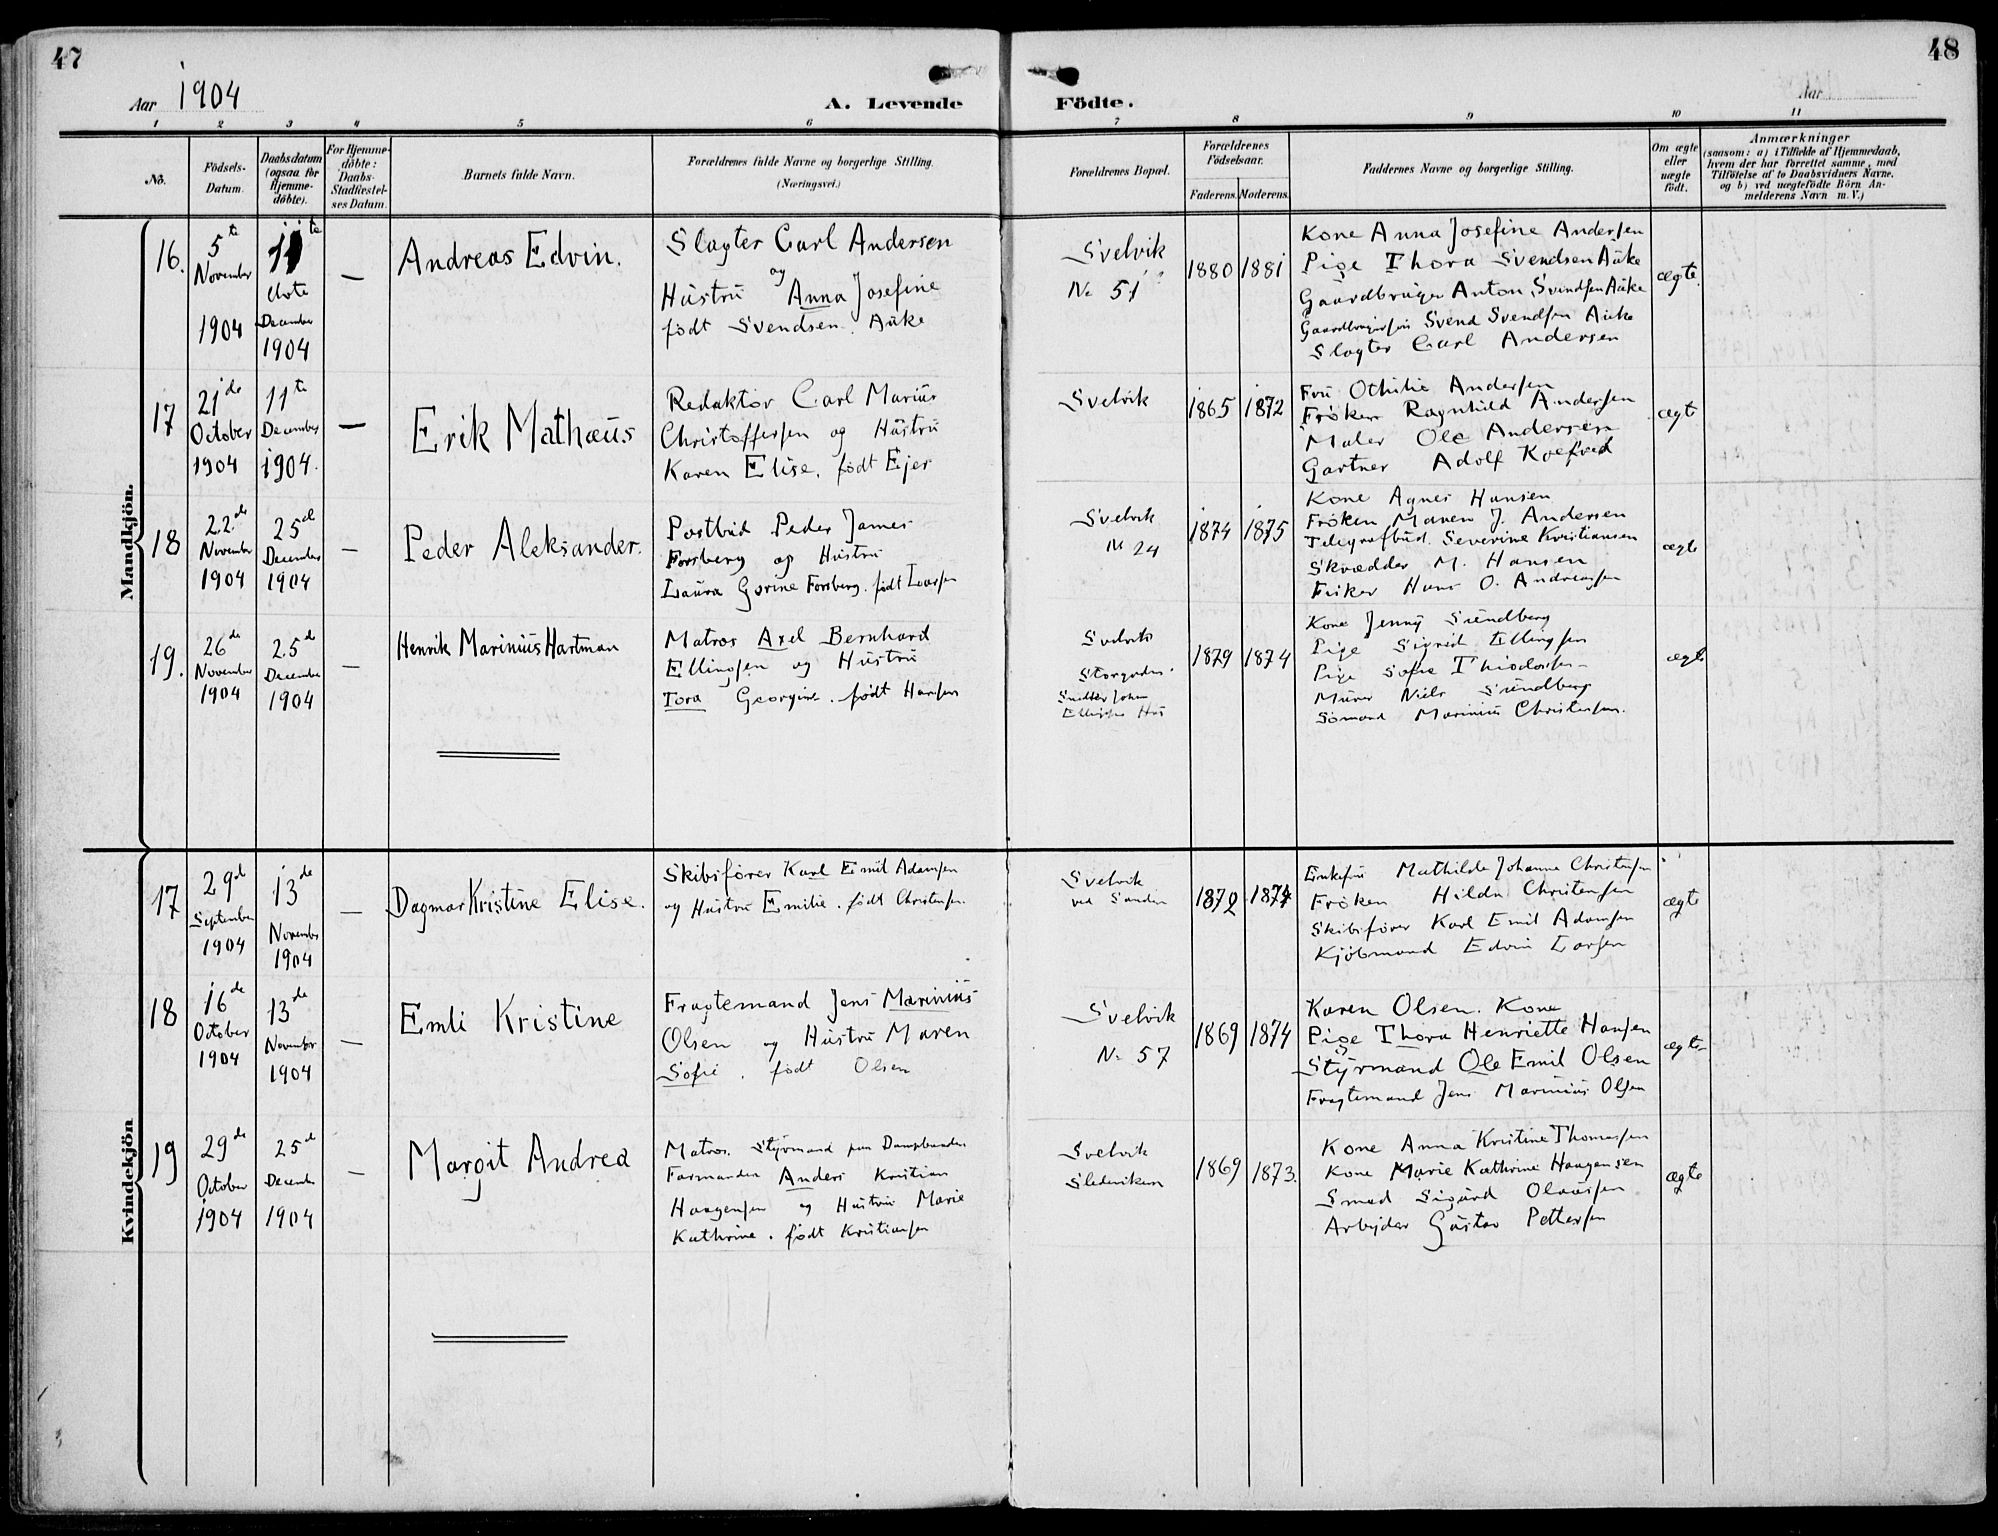 47
48
Aar 1904
A. Levende Födte.
Aar
1 2 3 4 5 6 7 8 9 10 11
No.
Födsels-
Datum.
Daabsdatum
(ogsaa for
Hjemme-
döbte).
For Hjemme-
döbte:
Daabs-
Stadfæstel-
ses Datum.
Barnets fulde Navn.
Forældrenes fulde Navne og borgerlige Stilling.
(Næringsvei.)
Forældrenes Bopæl.
Forældrenes
Födselsaar.
Faderens. Moderens.
Faddernes Navne og borgerlige Stilling.
Om ægte
eller
uægte
födt.
Anmærkninger
(saasom: a) i Tilfælde af Hjemmedaab,
hvem der har forrettet samme, med
Tilföielse af to Daabsvidners Navne,
og b) ved uægtefödte Börn An-
melderens Navn m. V.)
Mandkjön.
16.
5te
November
1904
11te
December
1904
—
Andreas Edvin.
Slagter Carl Andersen
og
Hustru Anna Josefine
født Svendsen. Auke
Svelvik
No 51
1880 1881
Kone Anna Josefine Andersen
Pige Thora Svendsen Auke
Gaardbruger Anton Svendsen Auke
Svend Svendsen Auke
Slagter Carl Andersen
ægte.
17
21de
October
1904
11te
December
1904.
—
Erik Mathæus
Redaktør Carl Marius
Christoffersen og Hustru
Karen Elise. født Ejer
Svelvik
1865 1872
Fru Othilie Andersen
Frøken Ragnhild Andersen
Maler Ole Andersen
Gartner Adolf
ægte
18
22de
November
1904
25de
December
1904
—
Peder Aleksander.
Postbud Peder James
Forsberg og Hustru
Laura Gorine Forsberg. født Larsen
Svelvik
No 24
1874 1875
Kone Agnes Hansen
Frøken Maren J. Andersen
Telegrafbud. Severine Kristiansen
Skrædder M. Hansen
Fisker Hans O. Andreassen
ægte
19.
26de
November
1904
25de
December
1904
—
Henrik Marinius Hartman
Matros Axel Bernhard
Ellingsen og Hustru
Tora Georgine. født Hansen
Svelvik
Storgaden
Snedker Johan
Ellingsens Hus
1879 1874
Kone Jenny Sundberg
Pige Sigrid Ellingsen
Pige Sofie
Murer Niels Sundberg
Sømand Marinius Christensen.
ægte
Kvindekjön
17
29de
September
1904
13de
November
1904
—
Dagmar Kristine Elise.
Skibsfører Karl Emil Adamsen
og Hustru Emilie. født Christensen.
Svelvik
ved Sanden
1872 1874
Enkefru Mathilde Johanne Christensen
Frøken Hilda Christensen
Skibsfører Karl Emil Adamsen
Kjøbmand Edvin Larsen
ægte
18
16de
October
1904
13de
November
1904
—
Emli Kristine
Fragtemand Jens Marinius
Olsen og Hustru Maren
Sofie. født Olsen
Svelvik
No 57
1869 1874
Karen Olsen. Kone
Pige Thora Henriette Hansen
Styrmand Ole Emil Olsen
Fragtemand Jens Marinius Olsen
ægte
19
29de
October
1904
25de
December
1904
—
Margit Andrea
Matros. Styrmand paa
Anders Kristian
Haagensen og Hustru Marie
Kathrine. født Kristiansen
Svelvik
1869 1873.
Kone Anna Kristine Thomassen
Kone Marie Kathrine Haagensen
Smed Sigurd Olaussen
Arbejder Gustav Pettersen
ægte